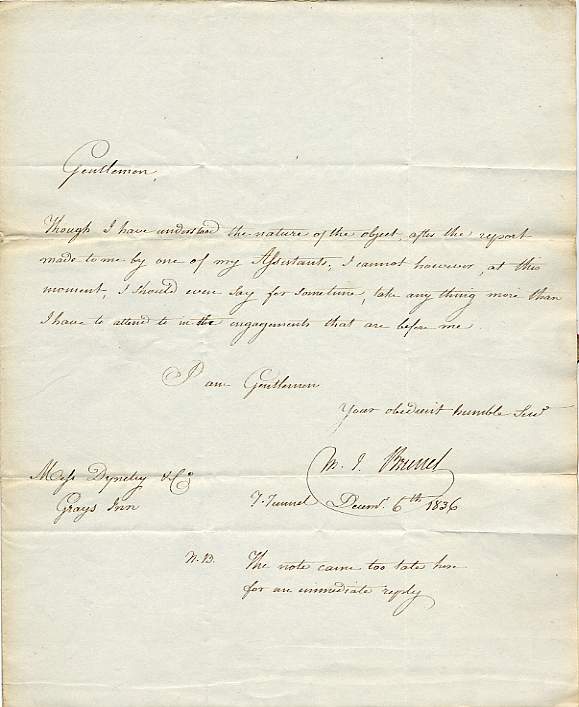 Gentlemen,
Though I have understood the nature of the object, after the report
made to me by one of my Assistants, I cannot however, at this
moment, I should even say for sometime, take any thing more than
I have to attend to in the engagements that are before me.
I am Gentlemen
Your obedient humble Servt
M. I. Brunel
Messrs Dyneley & Co
Grays Inn
T. Tunnel Decemr. 6th 1836
N.B. The note came too late here
for an immediate reply